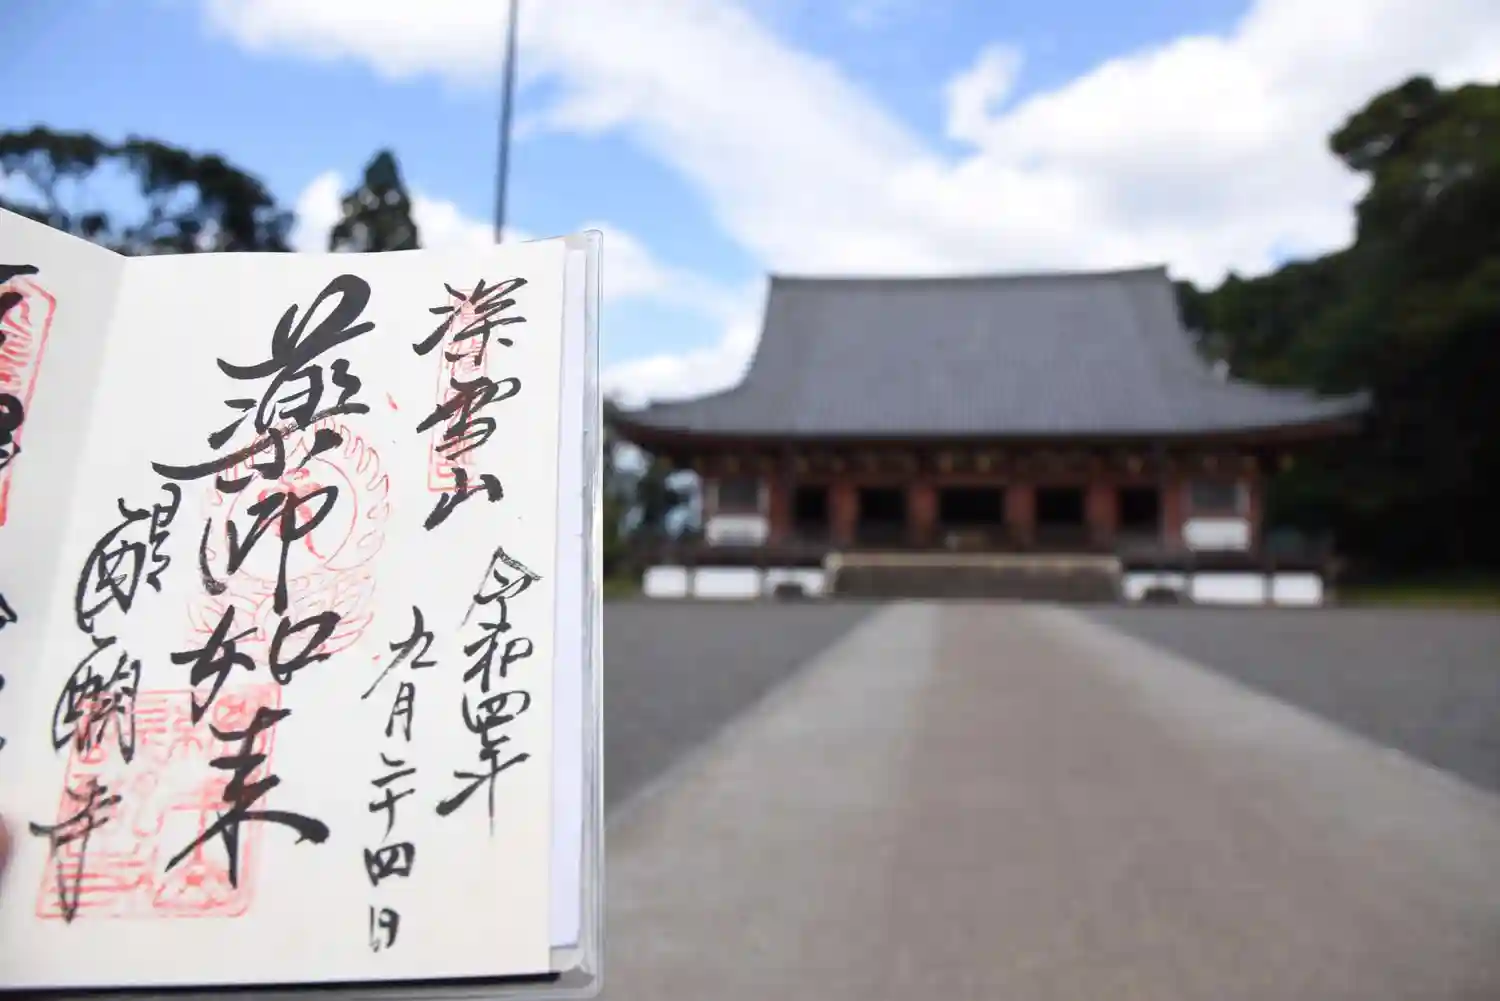 深雪山
令和四年
九月二十四日
薬師如来
醍醐寺